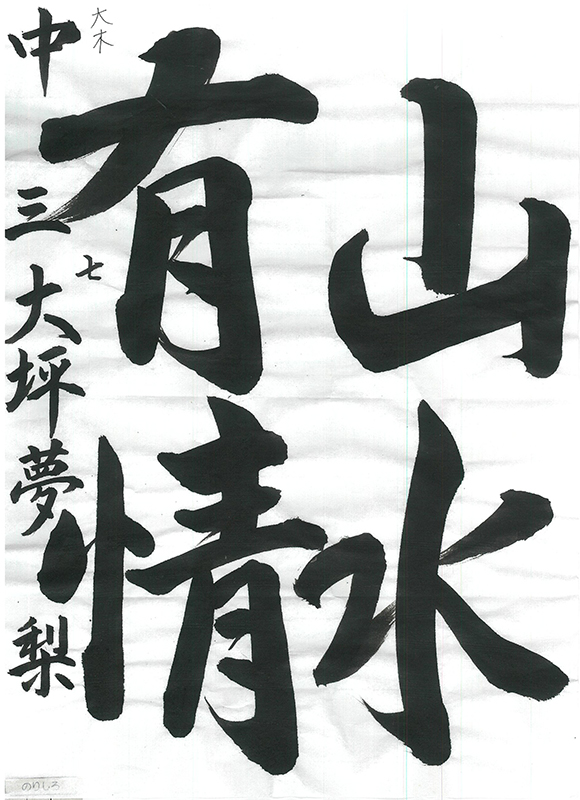 山水
有情
中三
七
大坪夢梨
大木
のりしろ